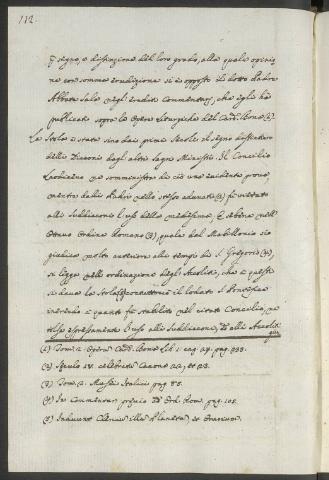 112.
p segno, e distinzione del loro grado, alla quale opinio
ne con somma erudizione si è opposto il dotto Padre
Abbate Sala negli eruditi Commentarj, che egli ha
publicati sopra le Opere Liturgiche del Card. Bona (1).
La Stola è stata sino dai primi Secoli il segno distintivo
delli Diaconi dagli altri sagri Ministri. Il Concilio
Laodiceno ne somministra di ciò una evidente prova,
mentre dalli Padri nello stesso adunati (2) fu vietato
alli Suddiaconi l'uso della medesima, E benchè nell'
Ottavo Ordine Romano (3), quale dal Mabillonio sia
giudicato molto anteriore alli tempi di S. Gregorio (4),
si legge nelle ordinazione degli Accoliti, che a questi
si dava la Stola (5) contuttociò il lodato S. Pontefice
inerendo a quanto fu stabilito nel citato Concilio, ne
tolse espressamente l'uso alli Suddiaconi, ed alli Accoliti
(1) Tom. 2. Oper. Card. Bona Lib. 1 cap. 24. pag. 233.
(2) Seculo IV. celebrato Canone 22, et 23.
(3) Tom. 2. Musei Italici pag. 85.
(4) In Commentar. prævio ad Ord. Rom. pag. 105.
(5) Induunt Clericum illum Planeta, et Orarium.